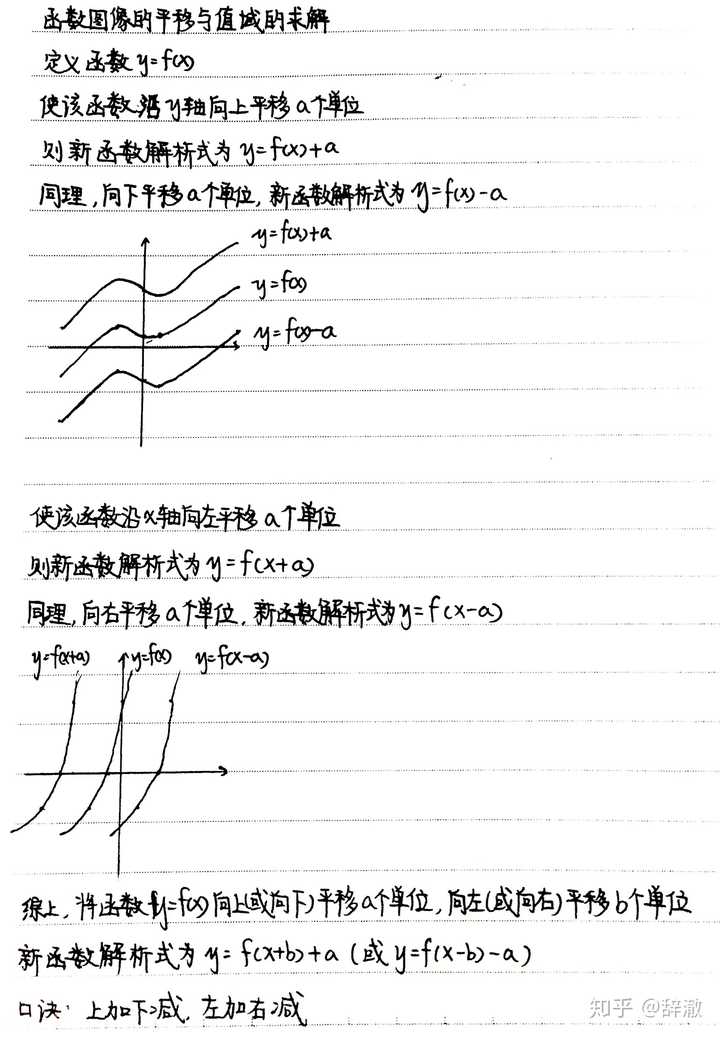 函数图像的平移与值域的求解
定义函数y=f(x)
使该函数沿y轴向上平移a个单位
则新函数解析式为y=f(x)+a
同理,向下平移a个单位,新函数解析式为y=f(x)-a
y=f(x)+a
y=f(x)
y=f(x)-a
使该函数沿x轴向左平移a个单位
则新函数解析式为y=f(x+a)
同理,向右平移a个单位,新函数解析式为y=f(x-a)
y=f(x+a) y=f(x) y=f(x-a)
综上,将函数y=f(x)向上(或向下)平移a个单位,向左(或向右)平移b个单位
新函数解析式为y=f(x+b)+a(或y=f(x-b)-a)
口诀:上加下减,左加右减
知乎 @辞澈